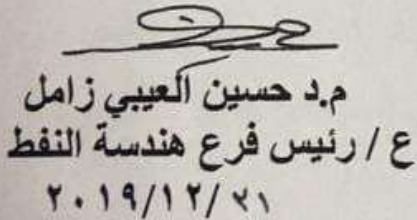 م.د حسين العيبي زامل
ع / رئيس فرع هندسة النفط
٢٠١٩/١٢/٣١